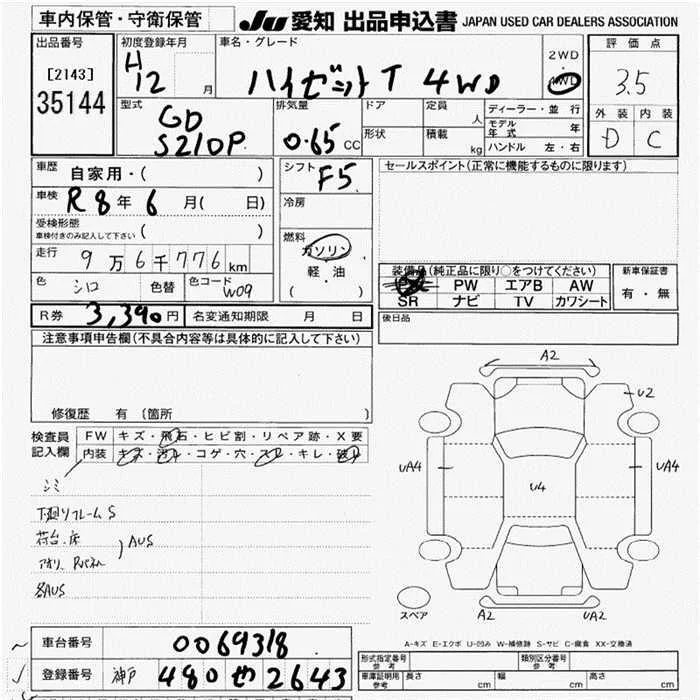 車内保管・守衛保管
JU 愛知 出品申込書 JAPAN USED CAR DEALERS ASSOCIATION
出品番号
[2143]
35144
初度登録年月
H
12 月
車名・グレード
ハイゼットT 4WD
2WD
4WD
評価点
3.5
外装 内装
D C
型式
GD
S210P
排気量
0.65 CC
ドア
形状
定員 人
積載 kg
ディーラー・並行
モデル年式 年
ハンドル 左・右
車歴 自家用・( )
車検 R8年6月( 日)
受検形態
車検付きのみ記入して下さい ( )
走行 9万6千776km
色 シロ 色替 色コード W09
シフト
F5
冷房
燃料
ガソリン
軽・油
( )
セールスポイント(正常に機能するものに限ります)
装備品(純正品に限り○をつけてください)
PW エアB AW
SR ナビ TV カワシート
新車保証書
有・無
後日品
R券 3,390円 名変通知期限 月 日
注意事項申告欄(不具合内容等は具体的に記入して下さい)
修復歴 有 〔箇所 〕
検査員
記入欄
FW キズ・飛石・ヒビ割・リペア跡・X要
内装 キズ・汚レ・コゲ・穴・スレ・キレ・破レ
シミ
下廻リフレームS
荷台.床
アオリ.
AUS
各AUS
A2
U2
UA4
UA4
U4
A2
UA2
スペア
A-キズ E-エクボ U-凹み W-補修跡 S-サビ C-腐食 XX-交換済
車台番号 0069318
登録番号 神戸 480 せ 2643
形式指定番号
参考
類別区分番号
参考
車庫証明用
参考
長さ cm
幅 cm
高さ cm